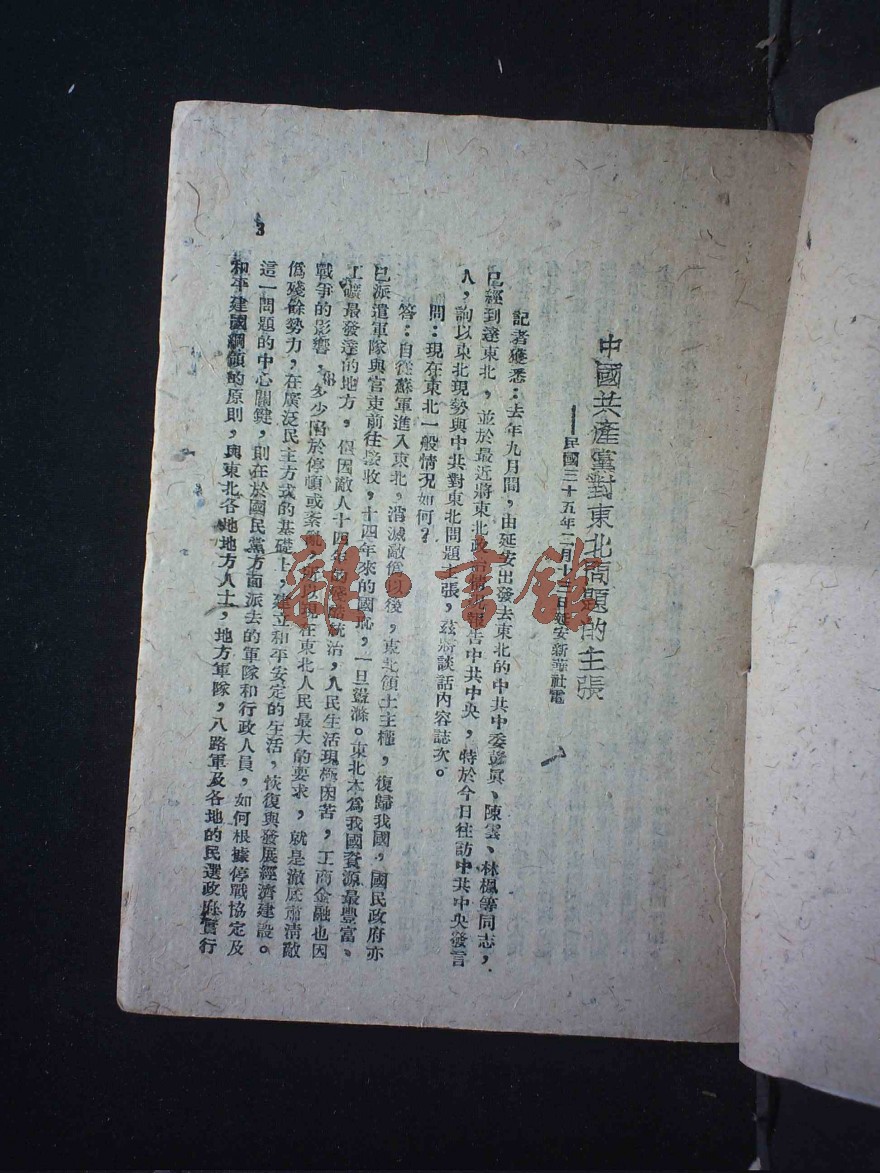 中國共產黨對東北問題的主張
——民國三十五年二月十三日延安新華社電
記者獲悉：去年九月間，由延安出發去東北的中共中委彭眞、陳雲、林楓等同志，
已經到達東北，並於最近將東北政治情況報告中共中央，特於今日往訪中共中央發言
人，詢以東北現勢與中共對東北問題主張，茲將談話內容誌次。
問：現在東北一般情况如何？
答：自從蘇軍進入東北，消滅敵僞以後，東北領土主權，復歸我國，國民政府亦
已派遣軍隊與官吏前往接收，十四年來的國恥，一旦盪滌。東北本爲我國資源最豐富、
工礦最發達的地方，但因敵人十四年的殘酷統治，人民生活現極困苦，工商金融也因
戰爭的影響，多少陷於停頓或紊亂，所以現在東北人民最大的要求，就是澈底肅清敵
僞殘餘勢力，在廣泛民主方式的基礎上，建立和平安定的生活，恢復與發展經濟建設。
這一問題的中心關鍵，則在於國民黨方面派去的軍隊和行政人員，如何根據停戰協定及
和平建國綱領的原則，與東北各地地方人士，地方軍隊，八路軍及各地的民選政府實行
3
雜·書館